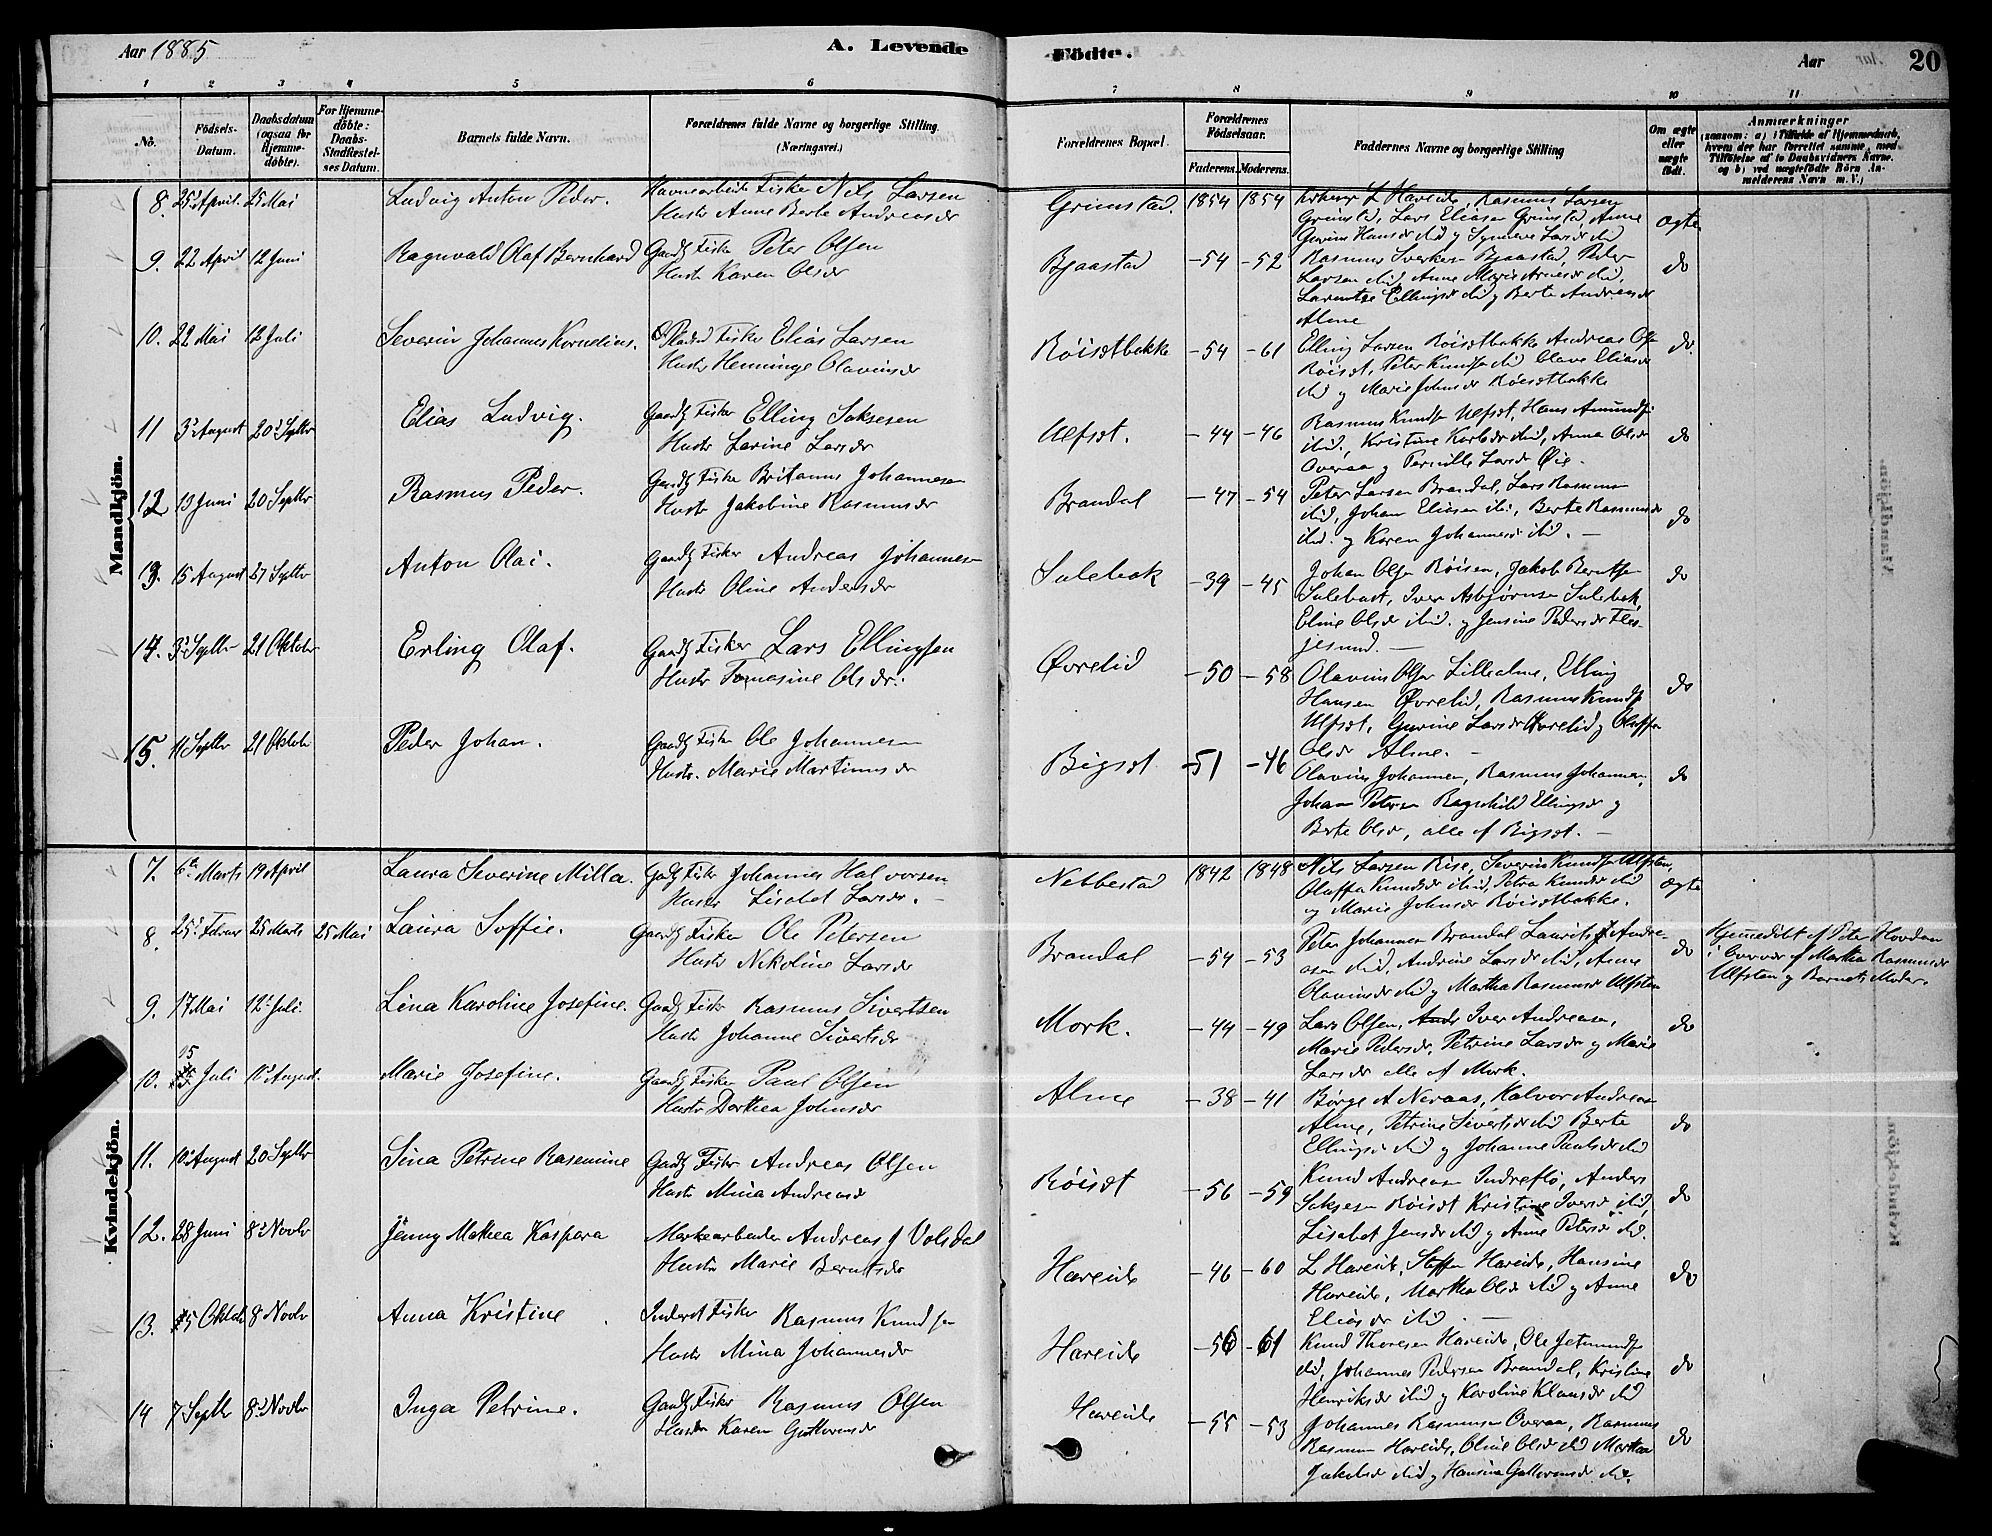 Aar 1885
A. Levende
Fødte.
Aar
20
1 2 3 4 5 6 7 8 9 10 11
No.
Fødsels-Datum.
Daabsdatum (ogsaa for Hjemme-døbte).
For Hjemme-døbte: Daabs-Stadfæstel-ses Datum.
Barnets fulde Navn.
Forældrenes fulde Navne og borgerlige Stilling (Næringsvei.)
Forældrenes Bopæl.
Forældrenes Fødselsaar.
Faderens. Moderens.
Faddernes Navne og borgerlige Stilling
Om ægte eller uægte født.
Anmærkninger
(saasom: a) i Tilfælde af Hjemmedaab, hvem der har forrettet samme, med Tilføielse af to Daabsvidners Navne. og b) ved uægtefødte Børn An-melderens Navn m. V.)
Mandkjön.
8. 25 April. 25 Mai Ludvig Anton Peder. Havnearbeider Fisker Nils Larsen
Hustr Anne Berte Andreasdr
Grimstad. 1854 1854
L Hareide, Rasmus Larsen
Grimstad, Lars Eliasen Grimstad, Anne
ægte
9. 22 April 12 Juni Ragnvald Olaf Bernhard Gaardb Fisker Peter Olsen
Hustr Karen Olsdr
Bjaastad -54 -52
Rasmus Iverksen Bjaastad, Peder
Larsen ibid, Anne Marie Arnesdr ibid,
Larentze Ellingsdr ibid og Berte Andreasdr
Alme
do
10. 22 Mai 12 Juli Severin Johannes Kornelius. Fisker Elias Larsen
Hustr Henninge Olavinsdr
Röisætbakke -54 -61
Elling Larsen Röisætbakke Andreas Olsen
Röisæt, Peter Knudsen ibid Olave Eliasdr
ibid og Marie Johnsdr Röisætbakke
do.
11 3 August 20 Septbr Elias Ludvig. Gaardb Fisker Elling Saksesen
Hustr Larine Larsdr
Ulfsæt. -44 -46
Rasmus Knudsen Ulfsæt, Hans Amundsen
ibid, Kristine Karlsdr ibid, Anna Olsdr
Overaa og Pernille Larsdr Øie.
do
12 13 Juni 20 Septbr Rasmus Peder. Gaardb Fisker Britanus Johannesen
Hustr Jakobine Rasmusdr
Brandal -47 -54
Peter Larsen Brandal, Lars Rasmusen
ibid, Johan Eliasen ibid, Berte Rasmusdr
ibid. og Karen Johannesdr ibid.
do
13. 15 August 27 Septbr Anton Olai. Gaardb Fisker Andreas Johannesen
Hustr Oline Andersdr
Sulebak -39 -45
Johan Olsen Röisen, Jakob Berntsen
Sulebak, Iver Asbjørnsen Sulebak,
Eline Olsdr ibid. og Jensine Pedersdr
do
14. 3 Septbr 21 Oktober Erling Olaf. Gaardb Fisker Lars Ellingsen
Hustr Tomasine Olsdr.
Øvrelid -50 -58
Olavius Olsen Lillealme, Elling
Hansen Øvrelid, Rasmus Knudsen
Ulfsæt, Gurine Larsdr Øvrelid og Oluffa
Olsdr Alme.
do
15. 11 Septbr 21 Oktobr Peder Johan. Gaardb Fisker Ole Johannesen
Hustr. Marie Martinusdr
Bigsæt -51 -46
Olavius Johannesen, Rasmus Johannesen,
Johan Petersen Ragnhild Ellingsdr og
Berte Olsdr, alle af Bigsæt.
do
Kvindekjön.
7. 6te Marts 19 April Laura Severine Milla. Gaardb Fisker Johannes Halvorsen
Hustr Lisabet Larsdr.
Nebbestad 1842 1848
Nils Larsen Rise, Severin Knudsen Ulfsten,
Oluffa Knudsdr ibid, Petra Knudsdr ibid
og Marie Johnsdr Röisætbakke.
ægte
8. 25 Februar 25 Marts 25 Mai Laura Soffie. Gaardb Fisker Ole Petersen
Hustr Nikoline Larsdr
Brandal -54 -53
Peter Johannesen Brandal Laurits Andre-
asen ibid, Andrine Larsdr ibid, Anne
Olavinsdr ibid og Martha Rasmusdr Ulfsten
do
Hjemmedöbt af Peter Hovdan
i Overvær af Martha Rasmusdr
Ulfsten og Barnets Moder.
9. 17 Mai 12 Juli. Lina Karoline Josefine. Gaardb Fisker Rasmus Sivertsen
Hustr Johanne Sivertsdr
Mork. -44 -49
Lars Olsen, Iver Andreasen,
Marie Pedersdr, Petrine Larsdr og Marie
Larsdr alle af Mork.
do
10. 15 Juli August. Marie Josefine. Gaardb Fisker Paul Olsen
Hustr Dorthea Johnsdr
Alme -38 -41
Börge A Neraas, Halvor Andreasen
Alme, Petrine Sivertsdr ibid Berte
Ellingsdr ibid og Johanne Paulsdr ibid
do
11. 10 August 20 Septbr Sina Petrine Rasmine Gaardb Fisker Andreas Olsen
Hustr Mina Andreasdr
Röisæt -56 -59
Knud Andreasen Indreflø, Anders
Saksesen Röisæt Kristine Iversdr ibid,
Lisabet Jensdr ibid og Anne Petersdr ibid.
do
12. 28 Juni 8 Novbr Jenny Mathea Kaspara Andreas J Volsdal
Hustr Marie Berntsdr
Hareide -46 -60
L Hareide, Steffen Hareide, Hansine
Hareide, Martha Olsdr ibid og Anne
Eliasdr ibid
do
13. 5 Oktober 8 Novbr Anna Kristine Inderst Fisker Rasmus Knudsen
Hustr Mina Johannesdr
Hareide -56 -61
Knud Thoresen Hareide, Ole Jetmundsen
ibid, Johannes Pedersen Brandal, Kristine
Henriksdr ibid og Karoline Klausdr ibid
do
14 7 Septbr 8 Novbr Inga Petrine. Gaardb Fisker Rasmus Olsen
Hustr Karen Guttormsdr
Hareide -55 -53
Johannes Rasmusen Overaa, Rasmus
Rasmusen Hareide, Oline Olsdr ibid Marthe
Jakobsdr ibid og Hansine Guttormsdr ibid.
do